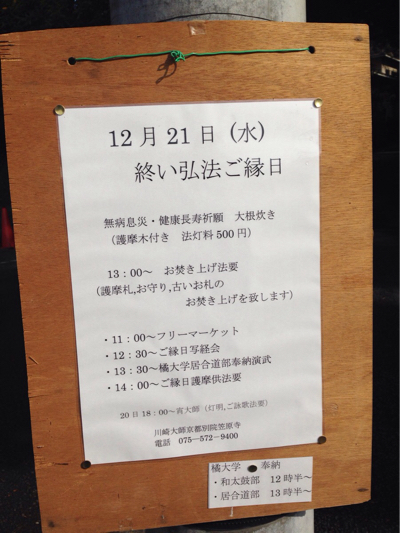 12月21日（水）
終い弘法ご縁日
無病息災・健康長寿祈願　大根炊き
（護摩木付き　法灯料500円）
13：00～　お焚き上げ法要
（護摩札,お守り,古いお札の
お焚き上げを致します）
・11：00～フリーマーケット
・12：30～ご縁日写経会
・13：30～橘大学居合道部奉納演武
・14：00～ご縁日護摩供法要
20日18：00～宵大師（灯明,ご詠歌法要）
川崎大師京都別院笠原寺
電話　075―572－9400
橘大学　奉納
・和太鼓部　12時半～
・居合道部　13時半～